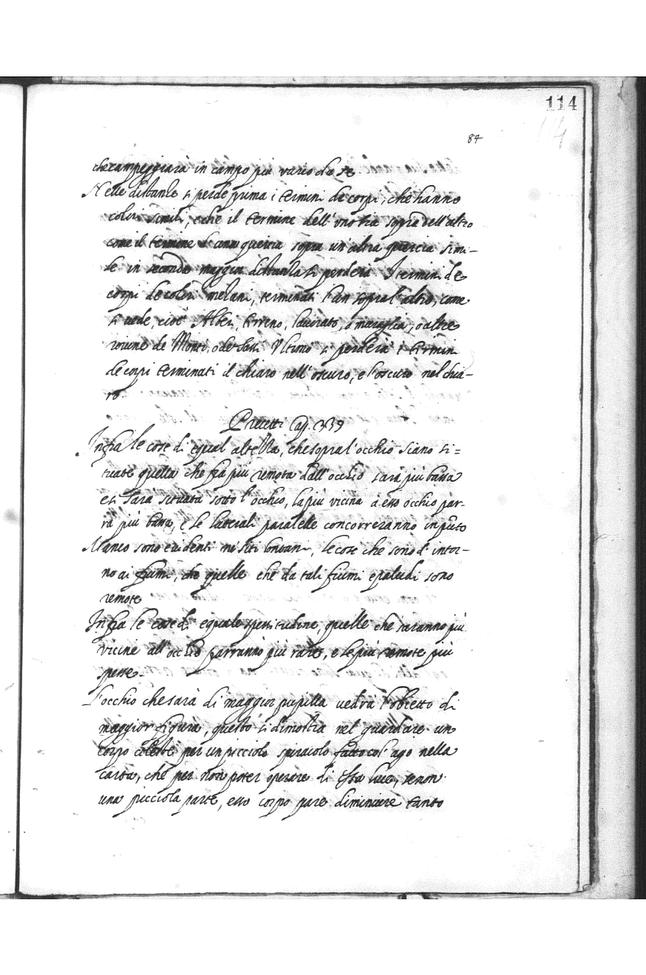 114
84
che campeggiarà in campo più vario da se
Nelle distantie si perde prima i termini de corpi, che hanno
colori simili, e che il termine dell'uno sia sopra dell'altro
come il termine d'una quercia sopra un'altra quercia simi-
le in secondo maggior distantia si perderà i termini de
corpi de colori mezani, terminati l'un sopra l'altro, come
si vede, cioè Alberi, terreno, lavorato, o muraglia, o altre
rovine de Monti, o de sassi. Ultimo si perderà i termini
de corpi terminati il chiaro nell'oscuro, e l'oscuro nel chia-
ro.
Precetti Cap. 339
Infra le cose d'equal altezza, che sopra l'occhio siano si-
tuate quella che fia più remota dall'occhio sarà più bassa
et sarà situata sotto l'occhio, la più vicina a esso occhio par-
rà più bassa, e le laterali paralelle concorreranno in punto
Manco sono evidenti ne siti lontani, le cose che sono d'intor-
no ai fiumi, che quelle che da tali fiumi e paludi sono
remote
Infra le cose di equale spessitudine, quelle che saranno più
vicine all'occhio parranno più rare, e le più remote più
spesse.
L'occhio che sarà di maggior pupilla vedrà l'obietto di
maggior figura, questo si dimostra nel guardare un
corpo celeste per un piccolo spiracolo fatto col'ago nella
carta, che per non poter operare di essa luce, se non
una picciola parte, esso corpo pare diminuire tanto